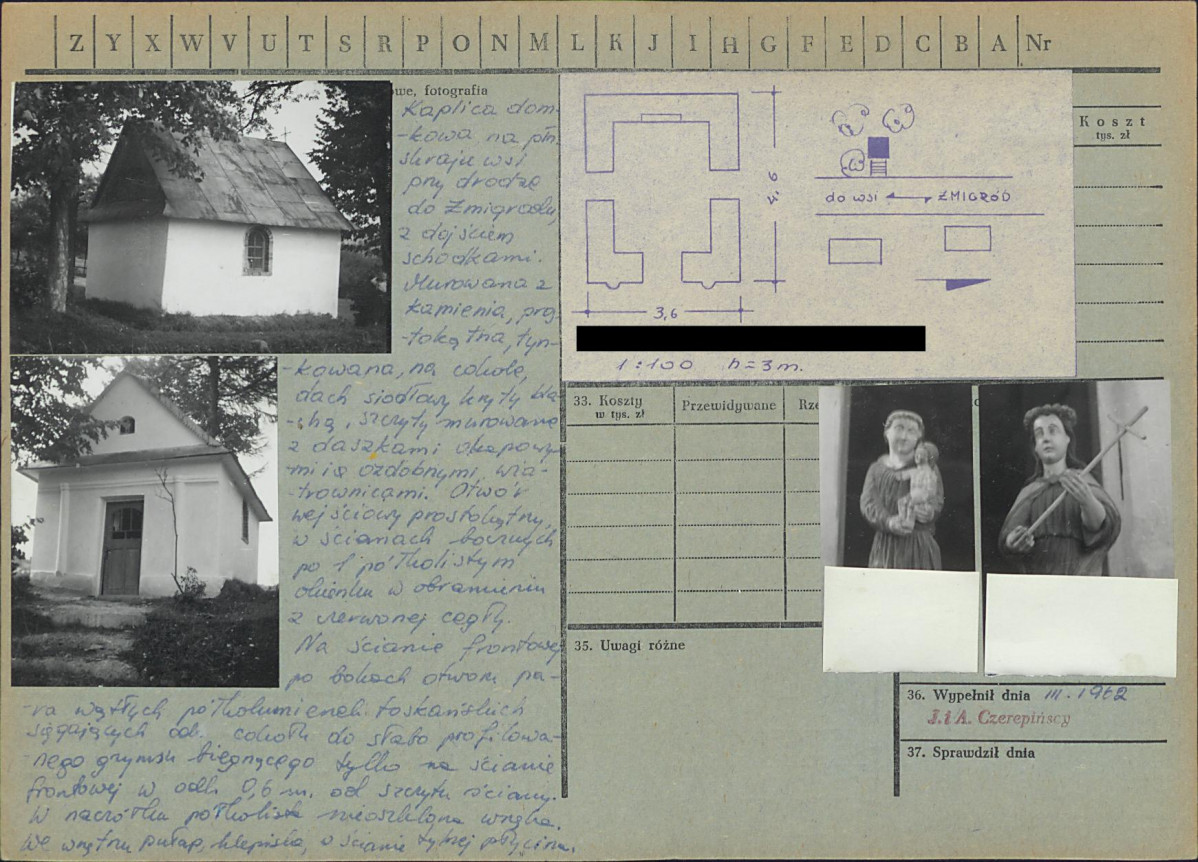 Z Y X W V U T S R P O N M L K J I H G F E D C B A Nr
we, fotografia
Kaplica dom-
-kowa na płn.
skraju wsi
przy drodze
do Żmigrodu
z dojściem
schodkami.
Murowana z
kamienia, pro-
-tokątna, tyn-
-kowana, na cokole,
dach siodłowy kryty bla-
-chą, szczyty murowane
z daszkami okapowy-
-mi i ozdobnymi, wia-
-trownicami. Otwór
wejściowy prostokątny,
w ścianach bocznych
po 1 półkolistym
okienku w obramieniu
z czerwonej cegły.
Na ścianie frontowej
po bokach otworu pa-
-ra wąskich półkolumienek toskańskich
sięgających od cokołu do słabo profilowa-
-nego gzymsu biegnącego tylko na ścianie
frontowej w odl. 0,6 m. od szczytu ściany.
W naczółku półkolista nieoszklona wnęka.
We wnętrzu pułap, klepisko, w ścianie tylnej płycina.
4,6
3,6
1:100 h=3m.
do wsi ŻMIGRÓD
Koszt
tys. zł
33. Koszty
w tys. zł
Przewidywane
Rze
35. Uwagi różne
36. Wypełnił dnia III. 1962
J. i A. Czerepińscy
37. Sprawdził dnia